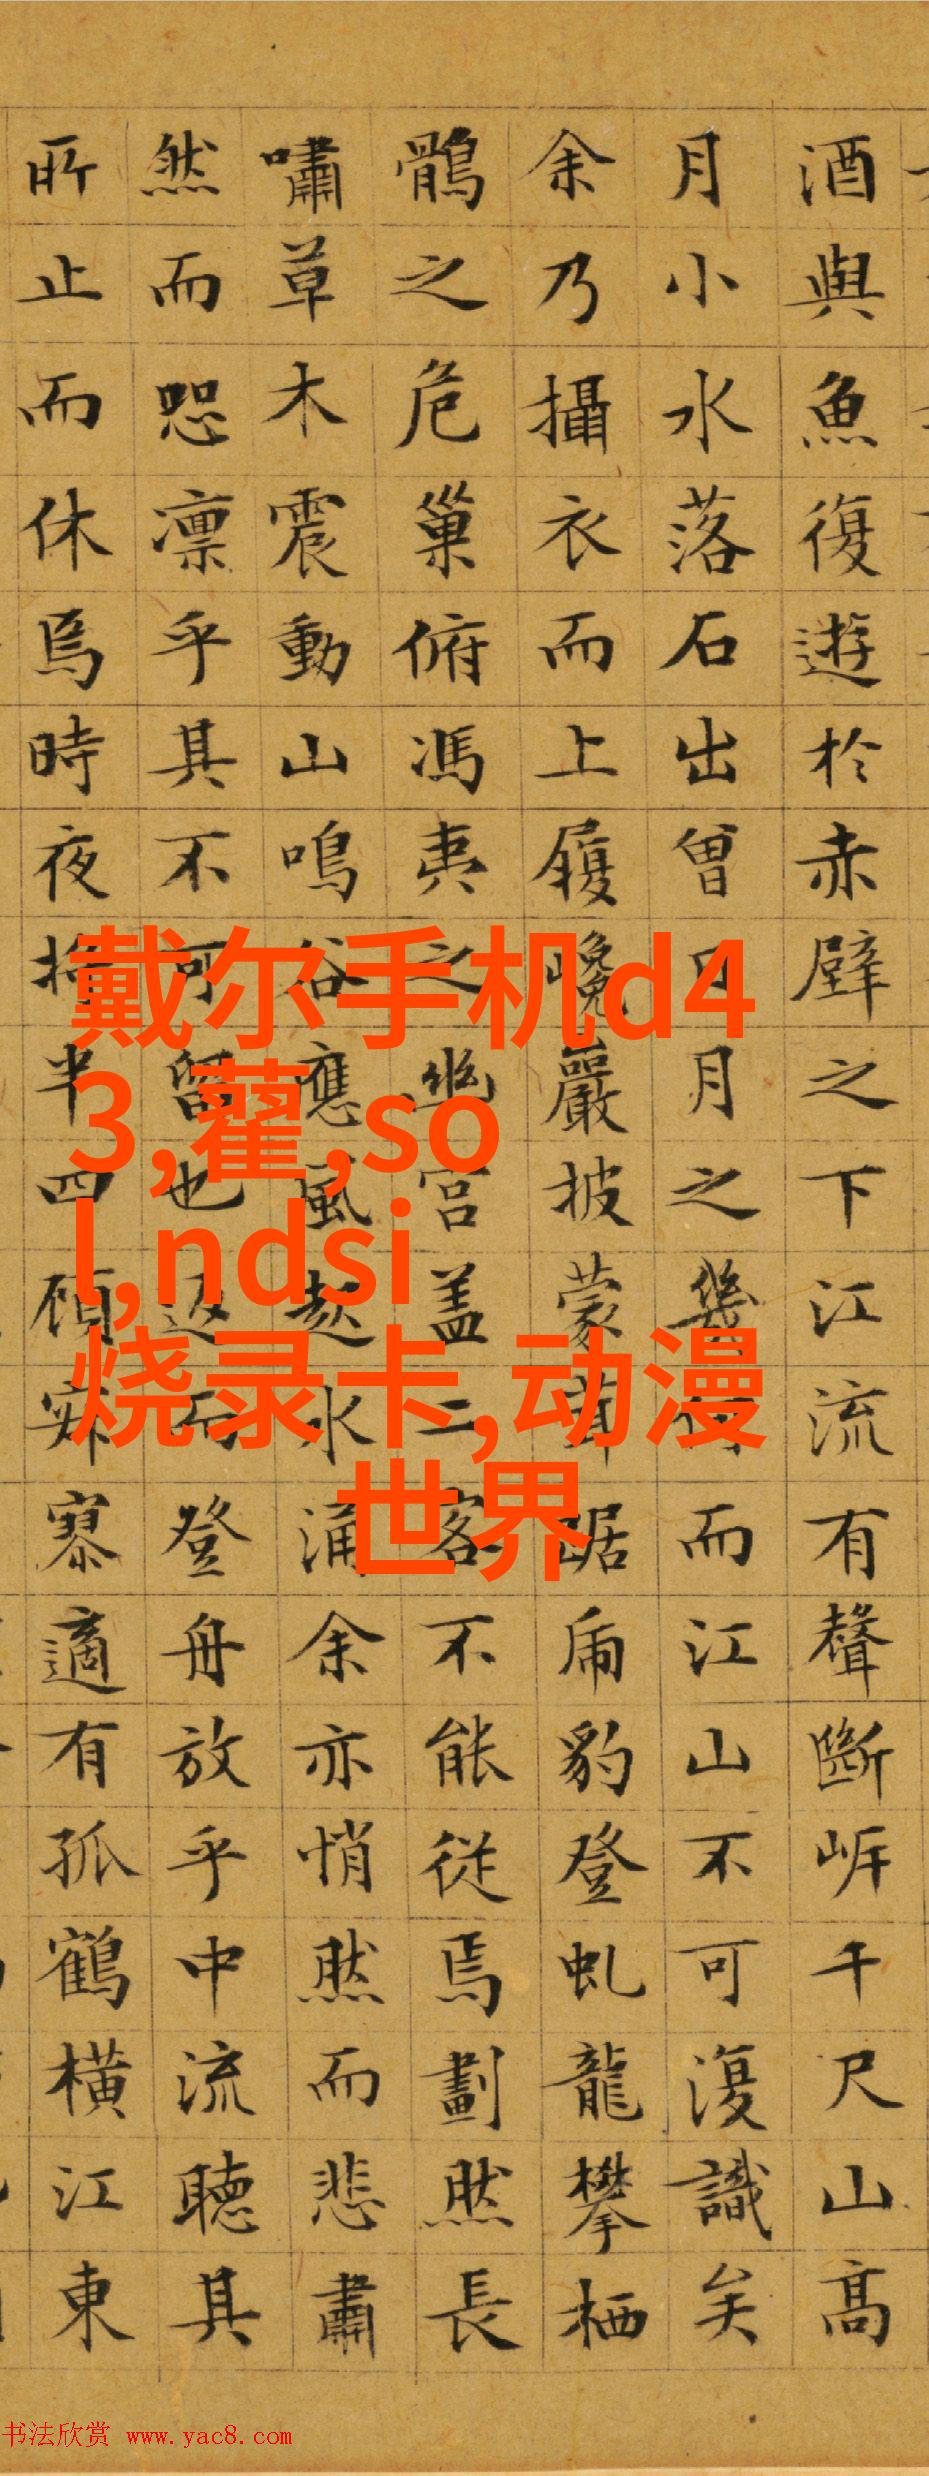 酒與魚復遊於赤壁之下江流有聲斷岸千尺山高
月小水落石出曾日月之幾何而江山不可復識矣
余乃攝衣而上履巉巖披蒙茸踞虎豹登虬龍攀栖
鶻之危巢俯馮夷之幽宮盖二客不能從焉劃然長
嘯草木震動山鳴谷應風起水涌余亦悄然而悲肅
然而恐凛乎其不可留也返而登舟放乎中流聽其
所止而休焉時夜將半四顧寂寥適有孤鶴橫江東
戴尔手机d4
3,藋,so
l,ndsi
烧录卡,动漫
世界
书法欣赏 www.yac8.com